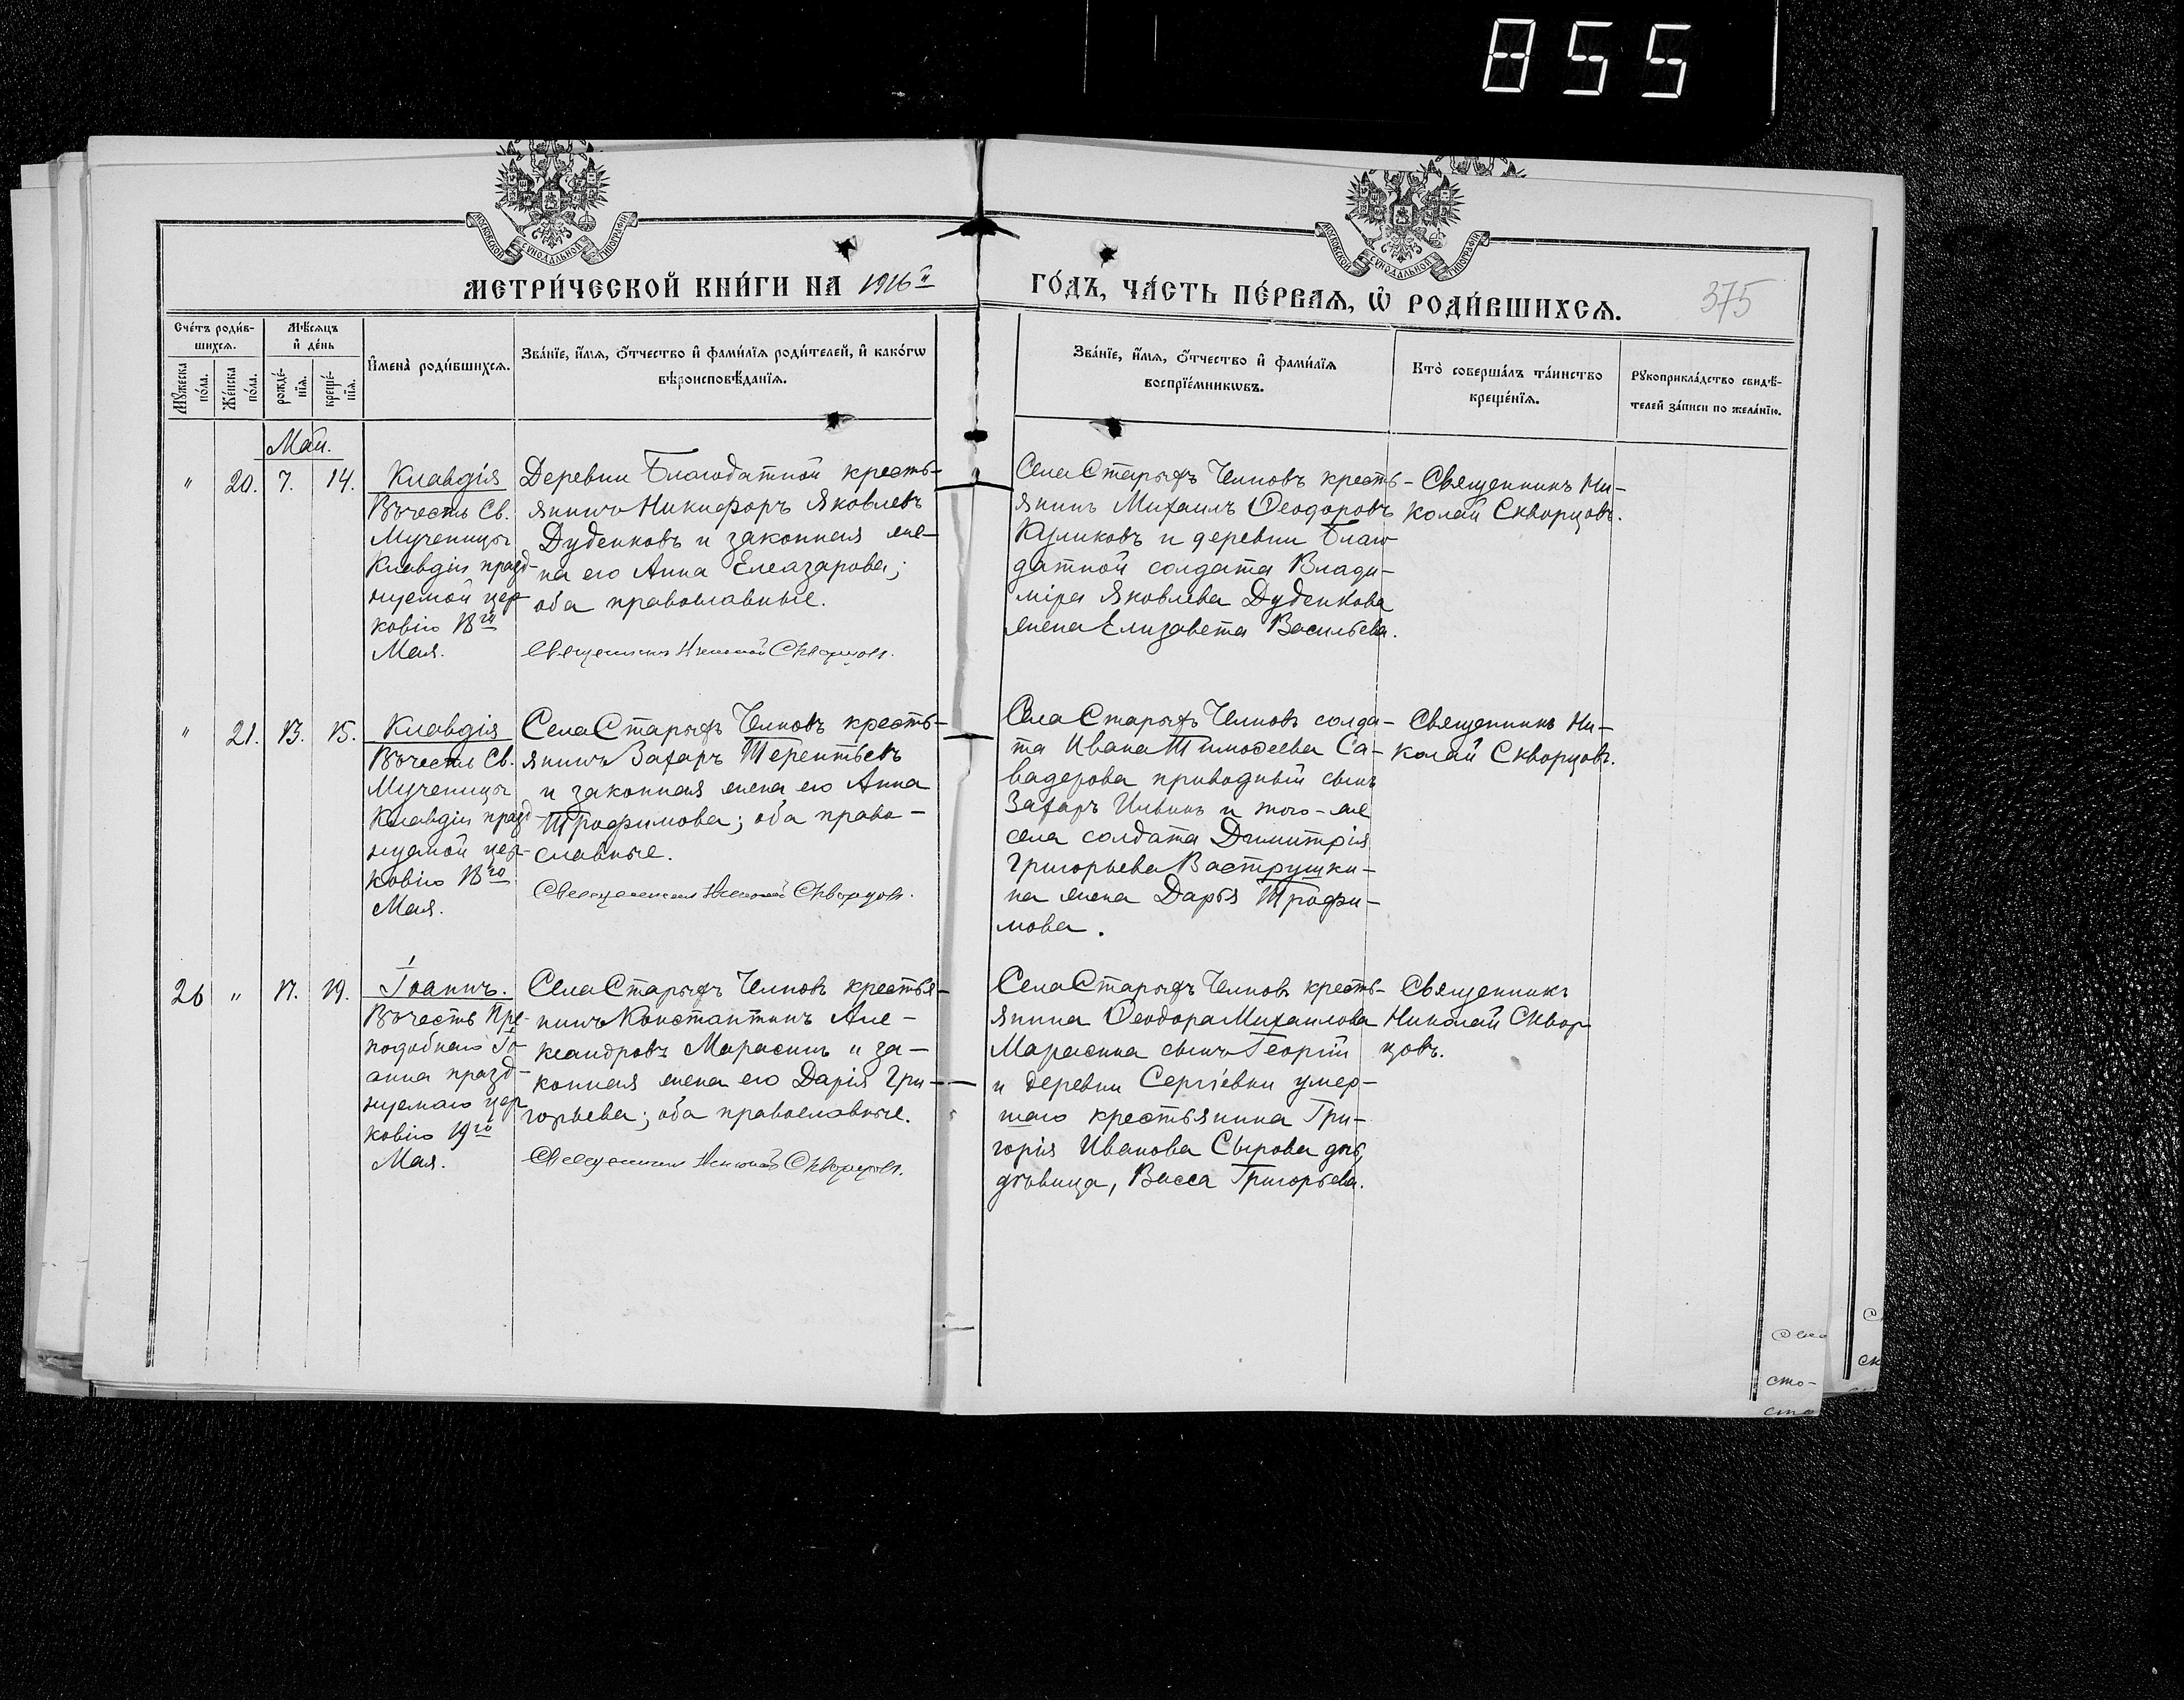 855
МОСКОВСКОЙ СѴНОДАЛЬНОЙ ТИПОГРАФІИ
МОСКОВСКОЙ СѴНОДАЛЬНОЙ ТИПОГРАФІИ
МЕТРИ́ЧЕСКОЙ КНИ́ГИ НА 1916й
ГО́ДЪ, ЧА́СТЬ ПЕ́РВАѦ, Ѡ҆ РОДИ́ВШИХСѦ.
375
Сче́тъ роди́в-
шихсѧ.
Мꙋ́жеска по́ла.
Же́нска по́ла.
Мѣ́сѧцъ
и҆ де́нь
рожде́-нїѧ.
креще́-нїѧ.
И҆мена̀ роди́вшихсѧ.
Зва́нїе, и҆́мѧ, ѻ҆́тчество и҆ фами́лїѧ роди́телей, и҆ како́гѡ
вѣроисповѣ́данїѧ.
Зва́нїе, и҆́мѧ, ѻ҆́тчество и҆ фами́лїѧ
воспрїе́мникѡвъ.
Кто̀ соверша́лъ та́инство
креще́нїѧ.
Рꙋкоприкла́дство свидѣ́-
телей за́писи по жела́нїю.
Май.
" 20. 7. 14.
Клавдія
Въ честь Св.
Мученицы
Клавдіи празд-
нуемой цер-
ковію 18го
Мая.
Деревни Благодатной кресть-
янинъ Никифоръ Яковлевъ
Дуденковъ и законная же-
на его Анна Елеазарова;
оба православные.
Священникъ Николай Скворцовъ.
Села Старыхъ Челновъ кресть-
янинъ Михаилъ Ѳеодоровъ
Куликовъ и деревни Благо
датной солдата Влади-
міра Яковлева Дуденкова
жена Елизавета Васильева.
Священникъ Ни-
колай Скворцовъ.
" 21. 13. 15.
Клавдія
Въ честь Св.
Мученицы
Клавдіи празд
нуемой цер-
ковію 18го
Мая.
Села Старыхъ Челновъ кресть-
янинъ Захаръ Терентьевъ
и законная жена его Анна
Трофимова; оба право-
славные.
Священникъ Николай Скворцовъ.
Села Старыхъ Челновъ солда-
та Ивана Тимоѳеева Са-
вадерова приводный сынъ
Захаръ Ильинъ и того-же
села солдата Димитрія
Григорьева Вострушки-
на жена Дарья Трофи-
мова.
Священникъ Ни-
колай Скворцовъ.
26 " 17. 19.
Іоаннъ.
Въ честь Пре-
подобнаго Іо-
анна празд-
нуемаго цер
ковію 19го
Мая.
Села Старыхъ Челновъ крестья-
нинъ Константинъ Але-
ксандровъ Марасинъ и за-
конная жена его Дарія Гри-
горьева; оба православные.
Священникъ Николай Скворцовъ.
Села Старыхъ Челновъ кресть-
янина Ѳеодора Михаилова
Марасина сынъ Георгій
и деревни Сергіевки умер-
шаго крестьянина Гри-
горія Иванова Сырова дочь,
дѣвица, Васса Григорьева.
Священникъ
Николай Сквор-
цовъ.
сто-